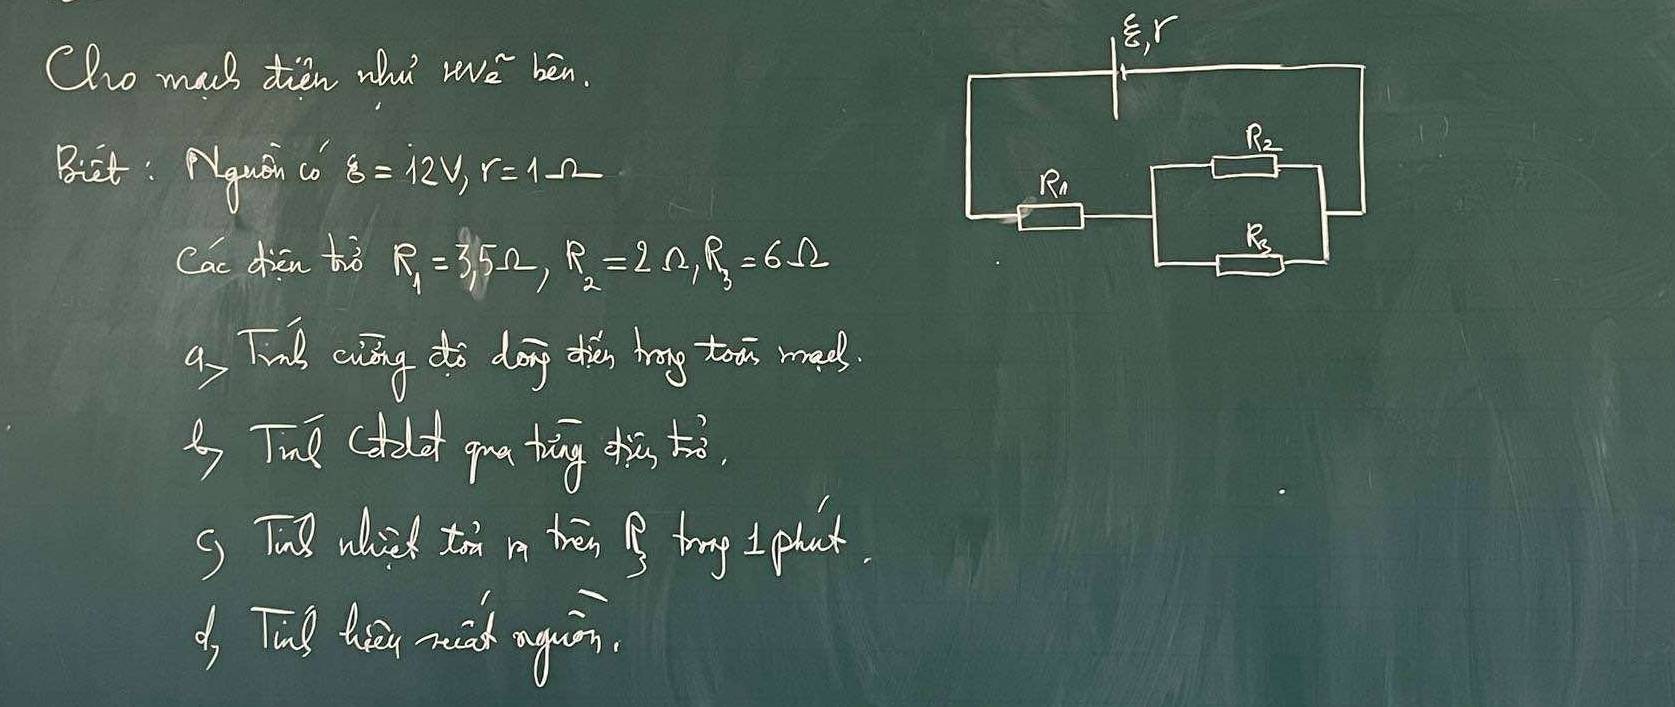 Cho mạch điện như hình vẽ bên.
ξ, r
Biết : Nguồn có ξ = 12V, r = 1Ω
R1
R2
R3
Các điện trở R1 = 3,5Ω, R2 = 2Ω, R3 = 6Ω
a, Tính cường độ dòng điện trong toàn mạch.
b, Tính cđdđ qua từng điện trở.
c, Tính nhiệt toả ra trên R3 trong 1 phút.
d, Tính hiệu suất nguồn.